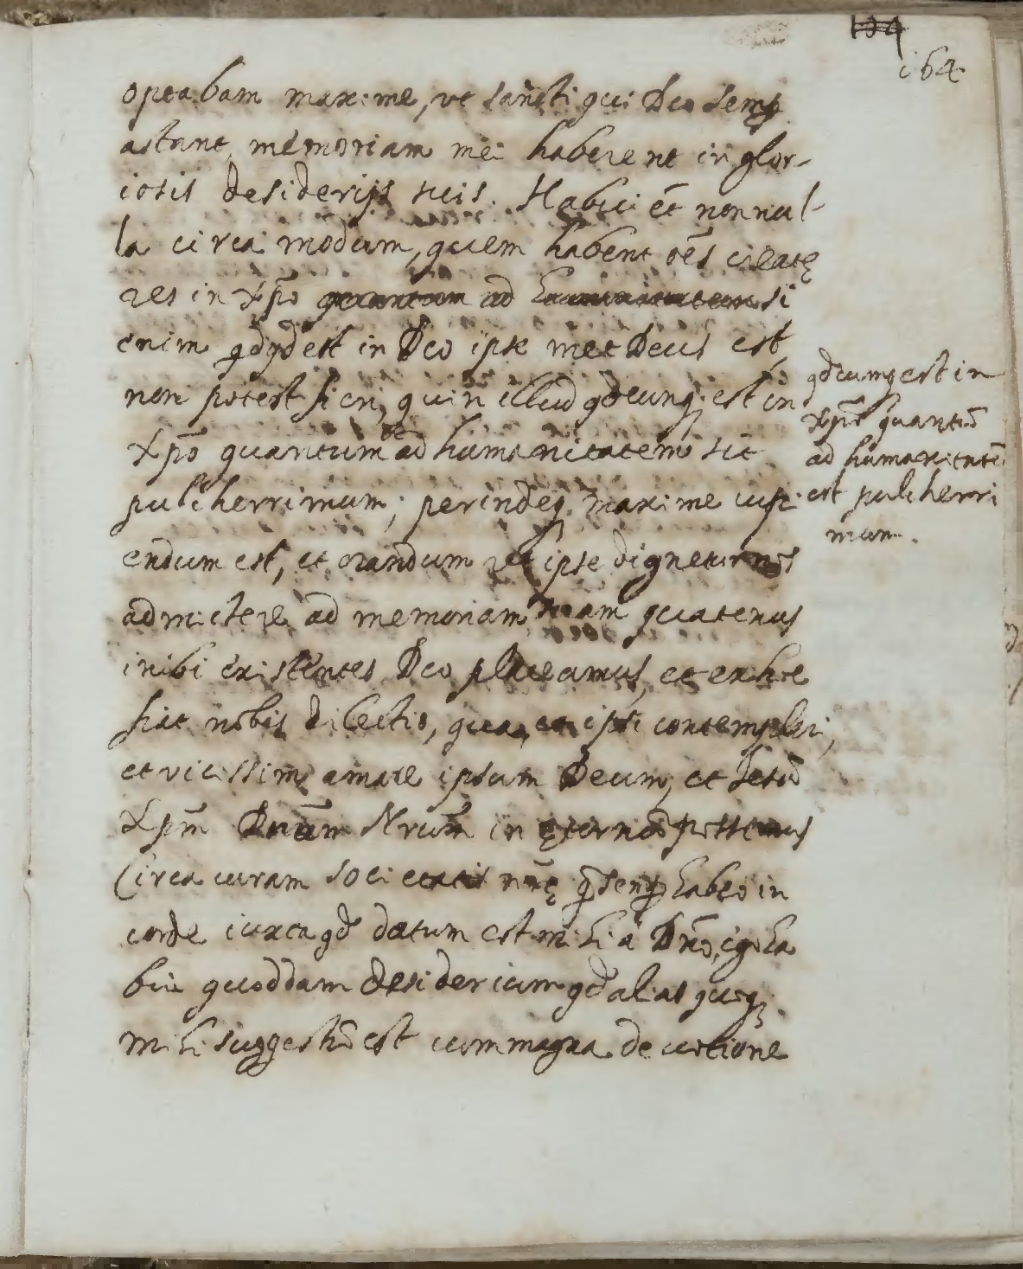 104
164
optabam maxime, ut sancti qui Deo semꝑ
astant, memoriam mei haberent in glor-
iosis desiderijs suis. Habui et̄ nonnul-
la circa modum, quem habent oēs creatę
res in Xp̄o quantum ad humanitatem si
enim qd̄qd̄ est in Deo ipse met Deus est,
non potest fieri, quin illud qd̄cunq; est in
Xp̄o quantum ad humanitatem sit
pulcherrimum; perindeq; maxime cupi-
endum est, et orandum ut ipse dignetur nos
admictere ad memoriam suam quatenus
inibi existentes Deo placeamus, et ex hoc
fiat nobis dilectio, qua et ipsi contemplari,
et vicissim amare ipsum Deum, et Jesū
Xpm̄ Dnūm Nrūm in ęternū possimus
Circa curam societatis nrę̄ q̄ semꝑ habeo in
corde iuxta qd̄ datum est mihi a Dn̄o, ego ha
bui quoddam desiderium qd̄ alias quoq;
mihi suggestū est cum magna devotione
qd̄cumq; est in
Xpō quantū
ad humanitatē
est pulcherri
mum.